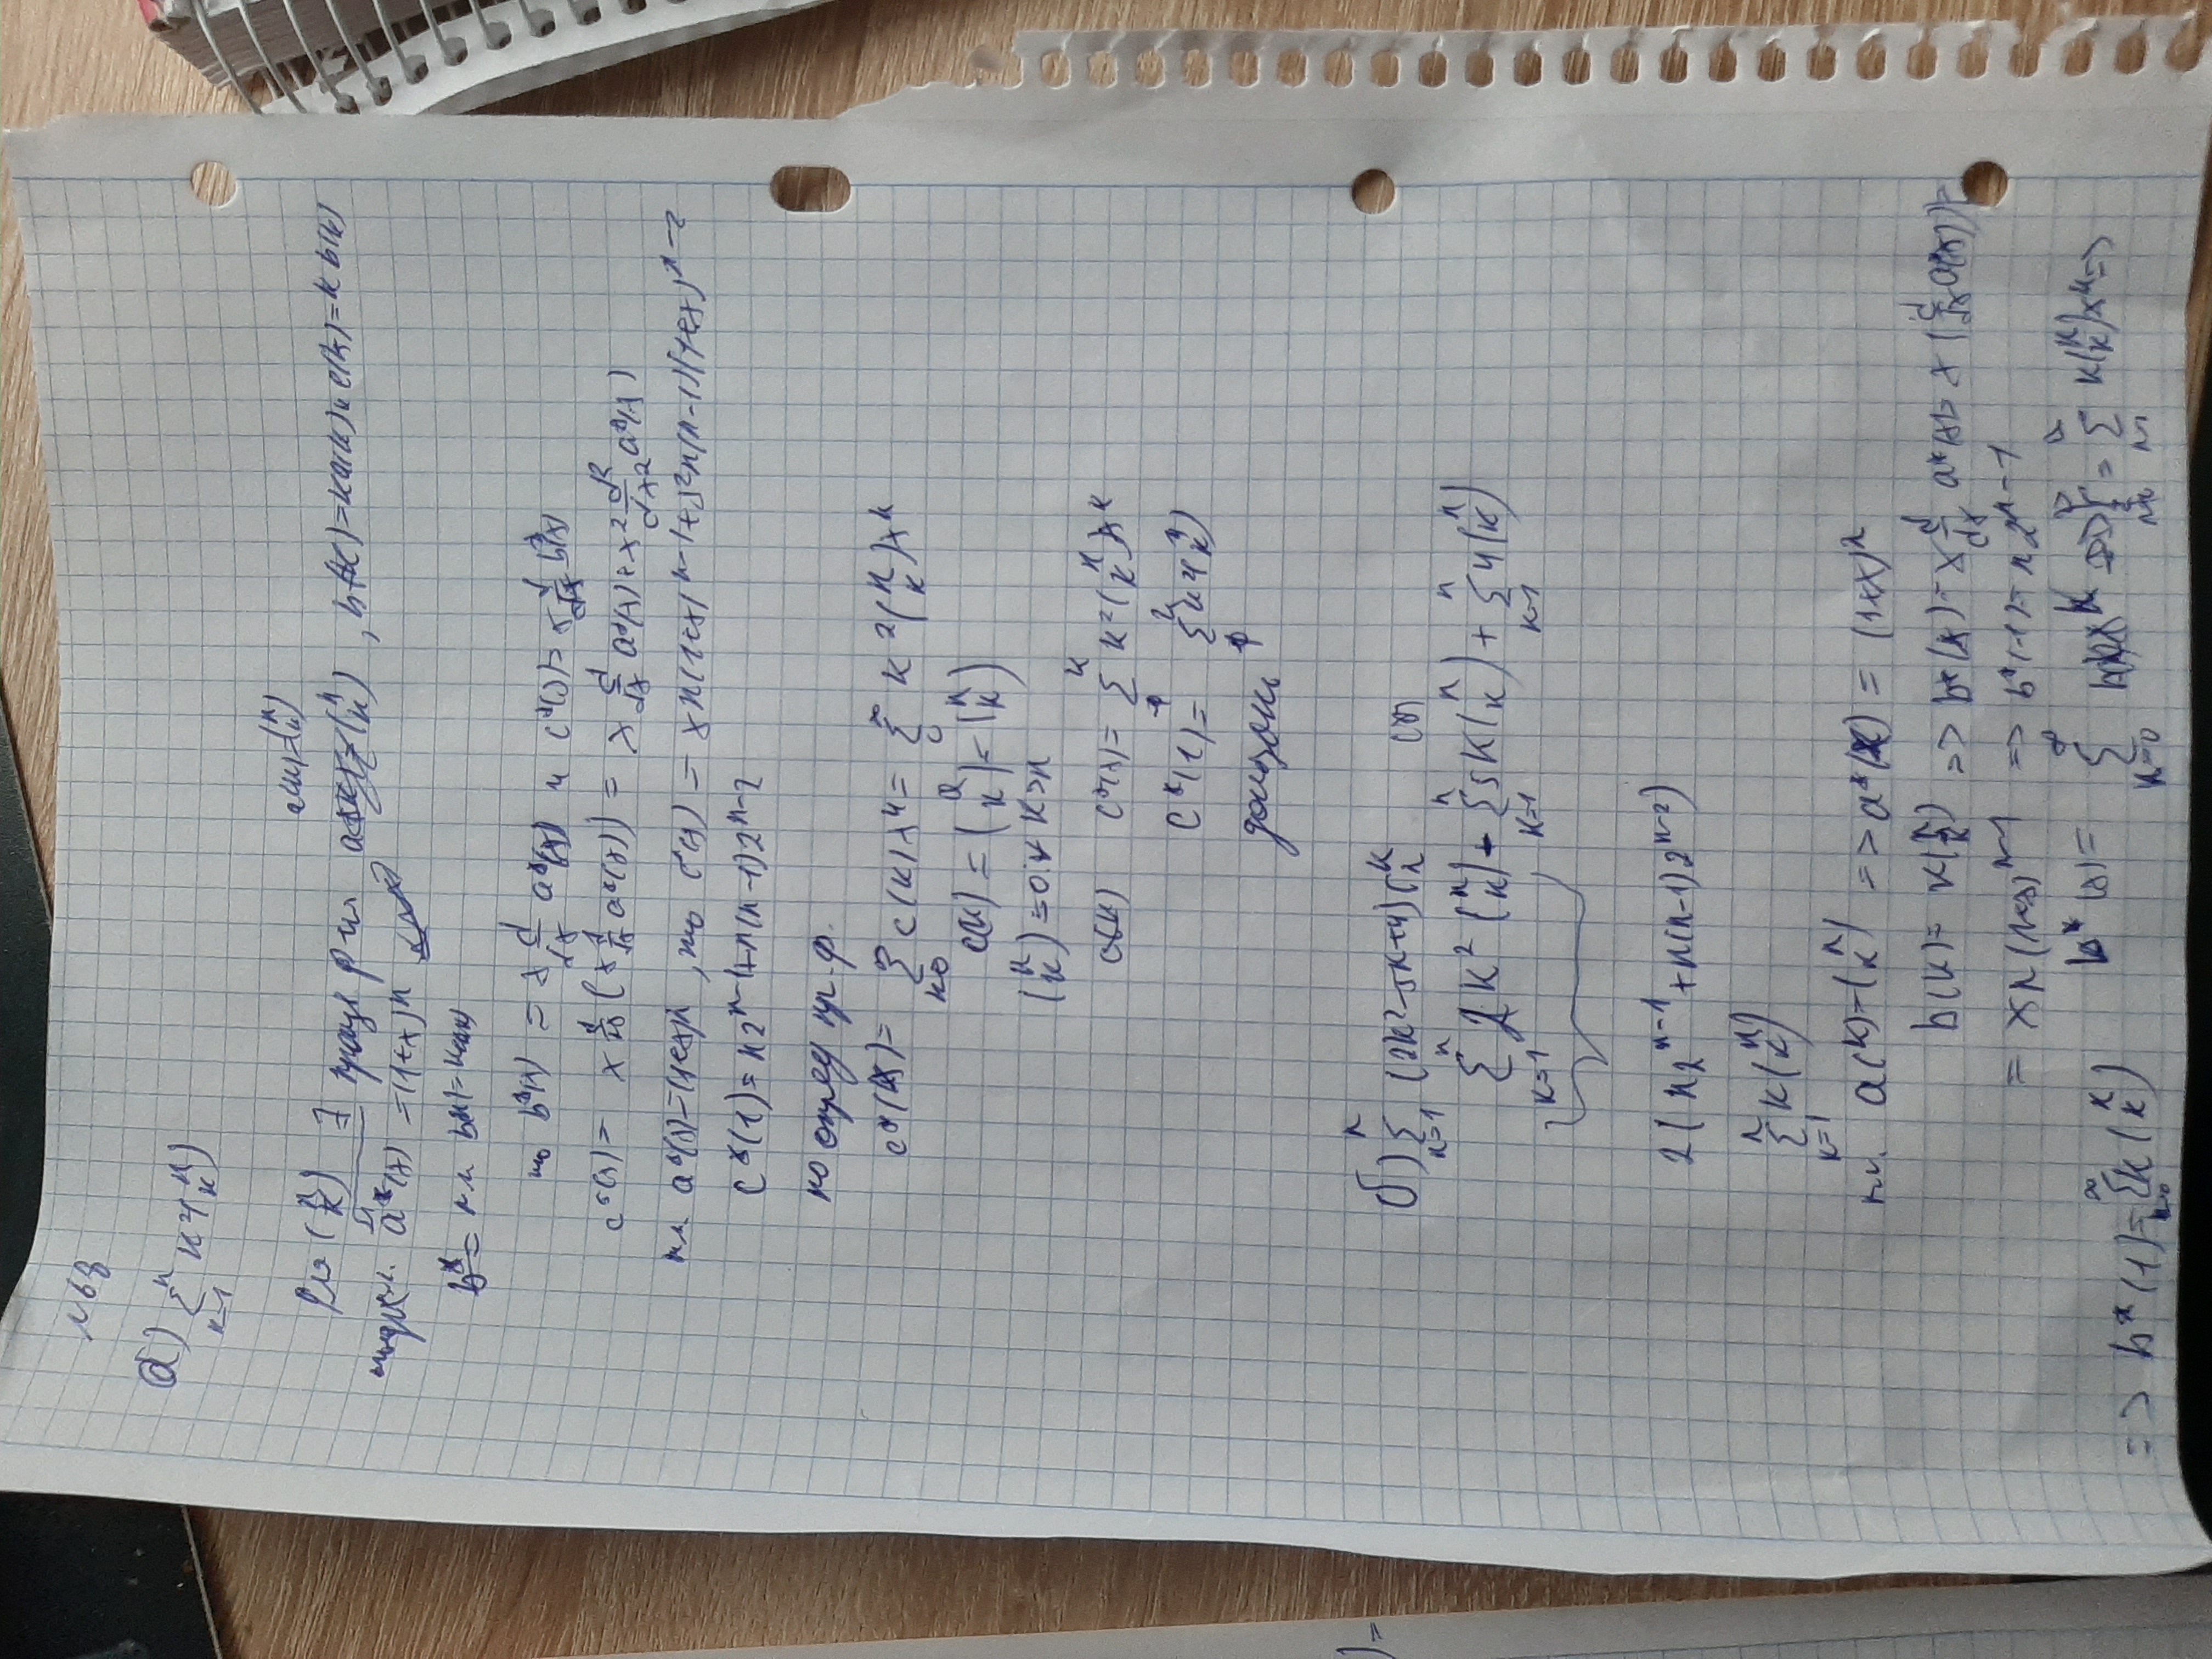 N68
а) ∑_{k=1}^{n} k²(n k)
a(k)=(n k)
До (n k) ∃ произв ф-ия (n k), b(k)=ka(k) и c(k)=k b(k)
a*(x) =(1+x)^n
b* = т.к b(k)=ka(k)
то b*(x) = x d/dx a*(x) и c*(x)=x d/dx b*(x)
c*(x)= x d/dx (x d/dx a*(x)) = x d/dx a*(x)+x² d²/dx² a*(x)
т.к. a*(x)=(1+x)^n, то c*(x) = xn(1+x)^{n-1}+x²n(n-1)(1+x)^{n-2}
c*(1)=n2^{n-1}+n(n-1)2^{n-2}
по опред пр. ф.
c*(x)= ∑_{k=0}^{∞} c(k)x^k= ∑_{0}^{∞} k²(n k)x^k
c(k) = = (n k)
(n k)=0 ∀ k>n
c(k) c*(x)= ∑ k²(n k)x^k
c*(1)= ∑ k²(n k)
б) ∑_{k=1}^{n} (2k²-5k+4)C_n^k
∑_{k=1}^{n} 2k²(n k) - ∑_{k=1}^{n} 5k(n k) + ∑_{k=1}^{n} 4(n k)
2(n2^{n-1}+n(n-1)2^{n-2})
∑_{k=1}^{n} k(n k)
т.к. a(k)=(n k) => a*(x) = (1+x)^n
b(k)= k(n k) => b*(x)=x d/dx a*(x)= x (d/dx a*(x))=
= xn(1+x)^{n-1} => b*(1)=n2^{n-1}
b*(x)= ∑_{k=0}^{∞} = ∑ k(n k)x^k =>
=> b*(1)=∑ k(n k)